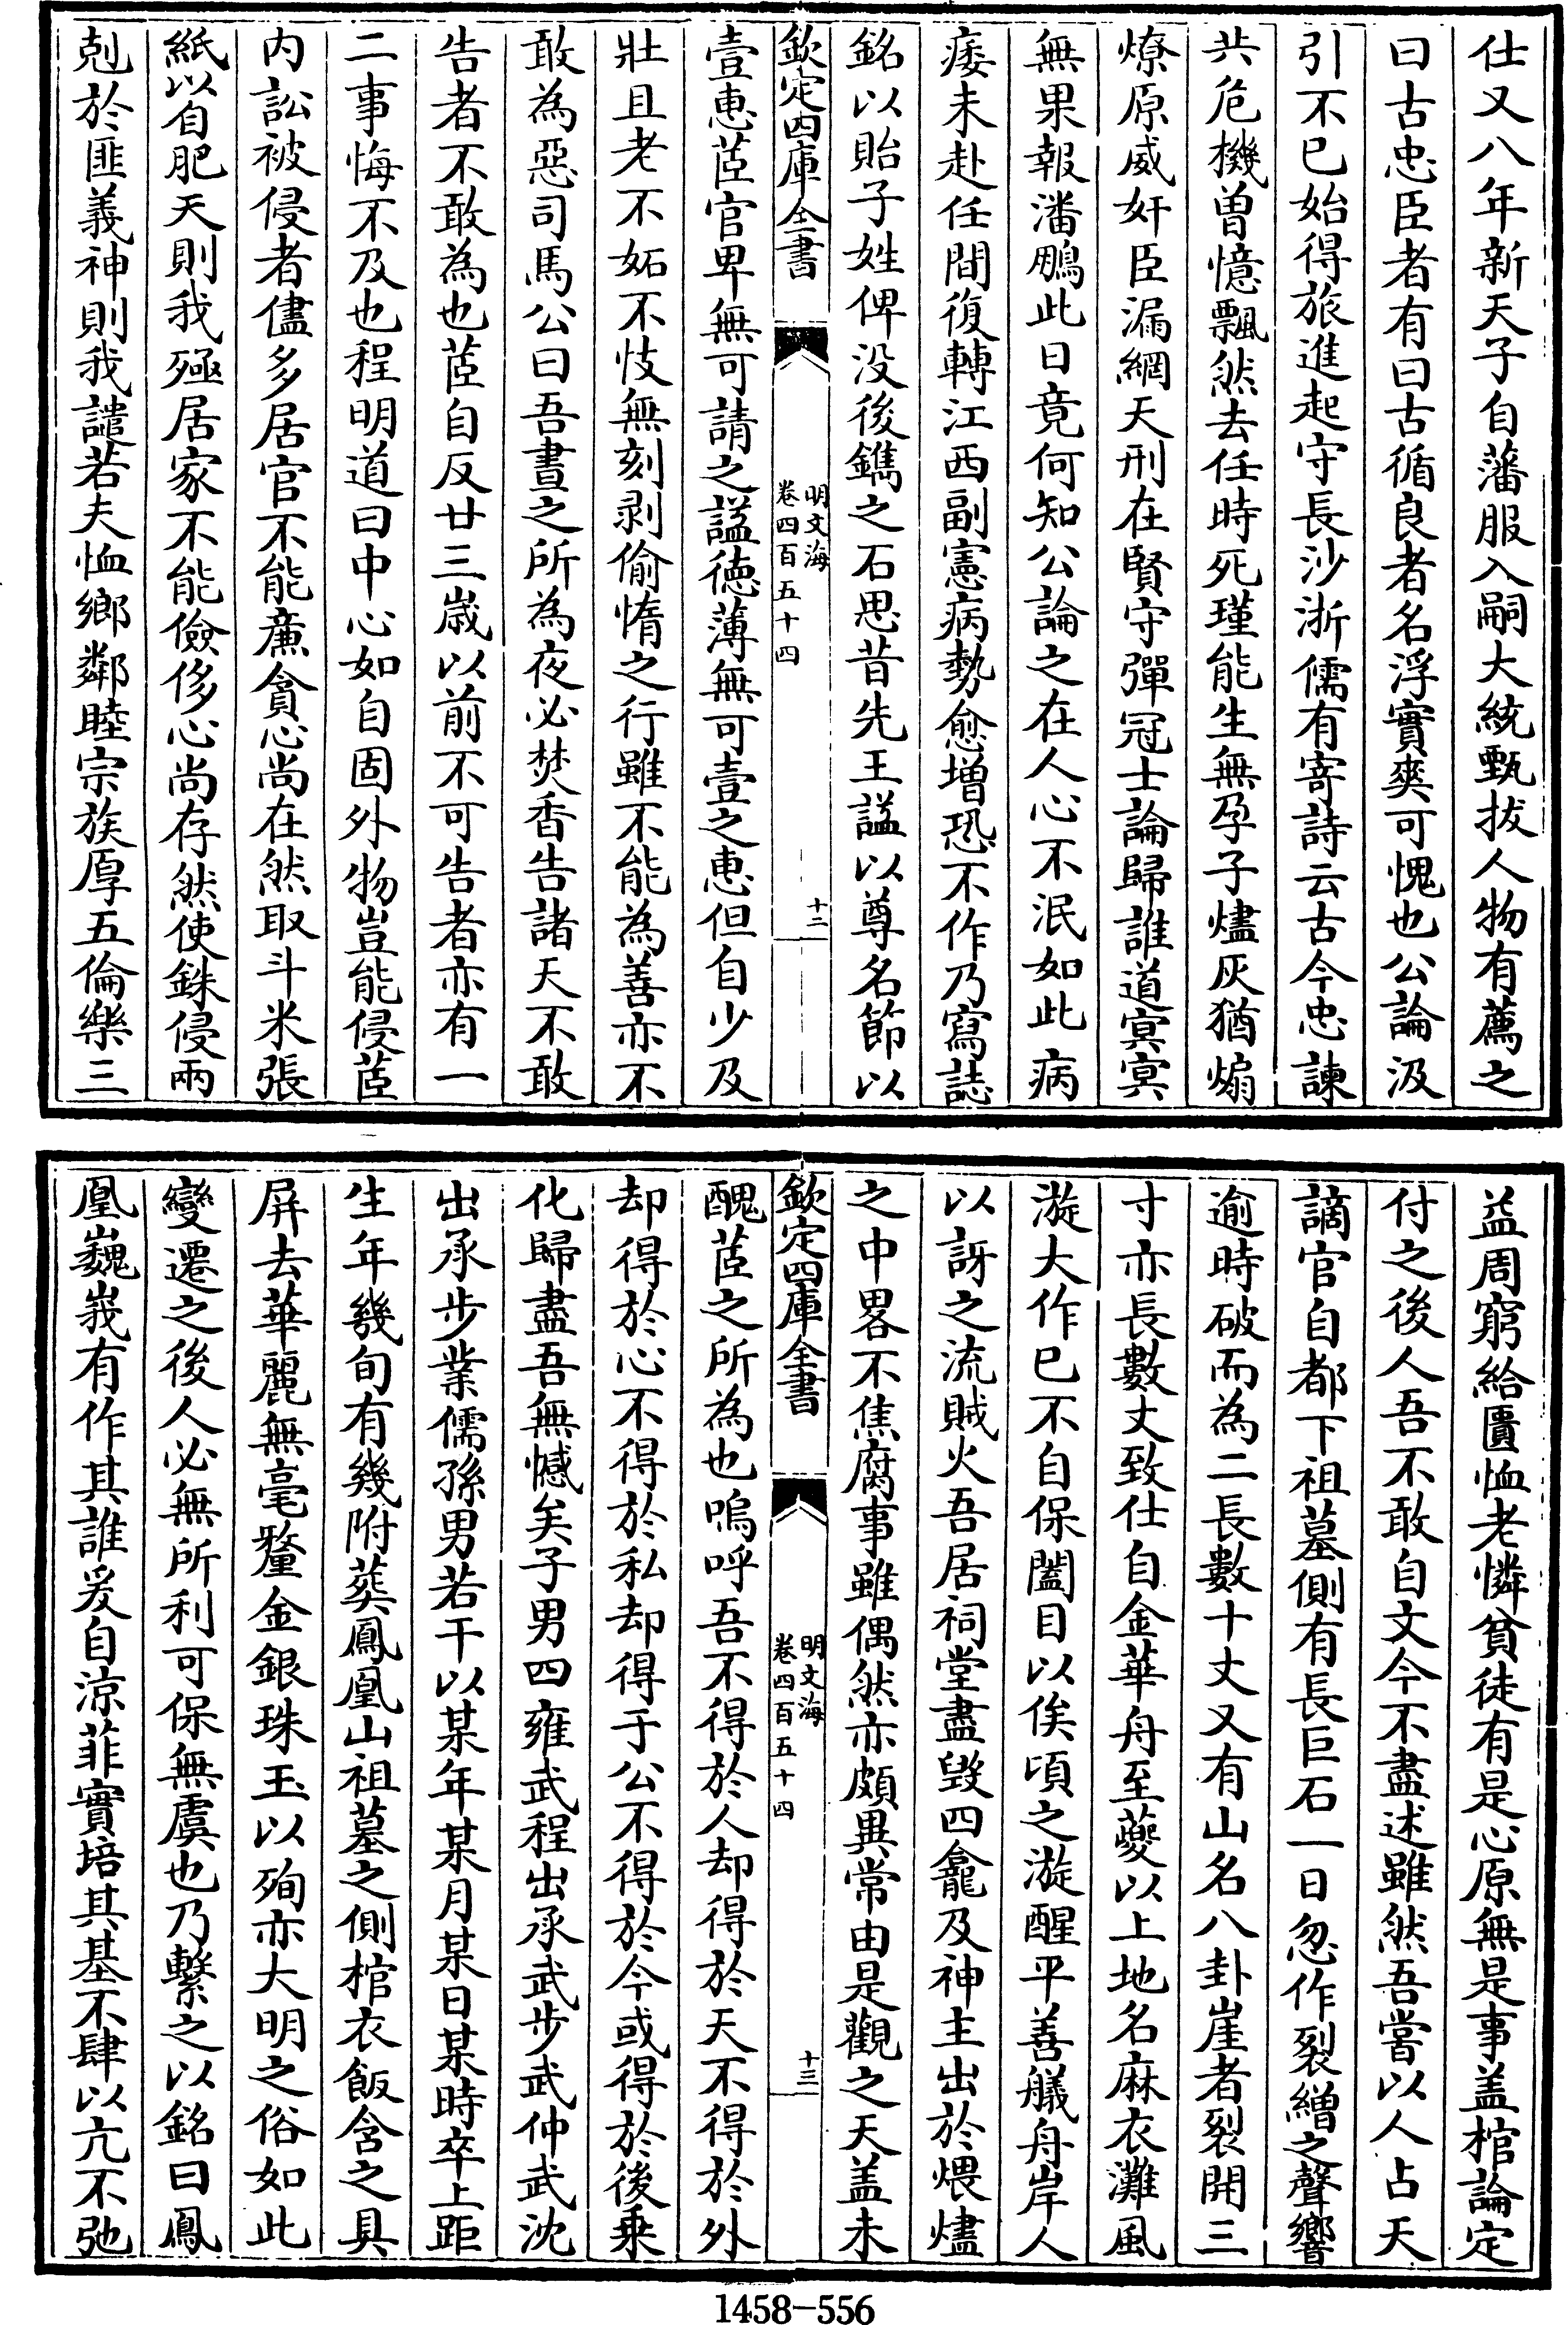 仕又八年新天子自藩服入嗣大統甄拔人物有薦之
曰古忠臣者有曰古循良者名浮實爽可愧也公論汲
引不已始得旅進起守長沙浙儒有寄詩云古今忠諫
共危機曽憶飄然去任時死瑾能生無孕子燼灰猶煽
燎原威奸臣漏網天刑在賢守彈冠士論歸誰道冥冥
無果報潘鵬此日竟何知公論之在人心不泯如此病
痿未赴任間復轉江西副憲病勢愈增恐不作乃寫誌
銘以貽子姓俾没後鐫之石思昔先王諡以尊名節以
欽定四庫全書
明文海
卷四百五十四
十二
壹惠茝官卑無可請之諡徳薄無可壹之惠但自少及
壯且老不妬不忮無刻剥偷惰之行雖不能為善亦不
敢為惡司馬公曰吾晝之所為夜必焚香告諸天不敢
告者不敢為也茝自反廿三嵗以前不可告者亦有一
二事悔不及也程明道曰中心如自固外物豈能侵茝
内訟被侵者儘多居官不能亷貪心尚在然取斗米張
紙以自肥天則我殛居家不能儉侈心尚存然使銖侵兩
剋於匪義神則我譴若夫恤鄉鄰睦宗族厚五倫樂三
益周窮給匱恤老憐貧徒有是心原無是事盖棺論定
付之後人吾不敢自文今不盡述雖然吾嘗以人占天
謫官自都下祖墓側有長巨石一日忽作裂繒之聲響
逾時破而為二長數十丈又有山名八卦崖者裂開三
寸亦長數丈致仕自金華舟至蘷以上地名麻衣灘風
漩大作已不自保闔目以俟頃之漩醒平善艤舟岸人
以訝之流賊火吾居祠堂盡毁四龕及神主出於煨燼
之中畧不焦腐事雖偶然亦頗異常由是觀之天盖未
欽定四庫全書
明文海
卷四百五十四
十三
醜茝之所為也嗚呼吾不得於人却得於天不得於外
却得於心不得於私却得于公不得於今或得於後乗
化歸盡吾無憾矣子男四雍武程出承武步武仲武沈
出承步業儒孫男若干以某年某月某日某時卒上距
生年幾旬有幾附葬鳳凰山祖墓之側棺衣飯含之具
屏去華麗無毫釐金銀珠玉以殉亦大明之俗如此
變遷之後人必無所利可保無虞也乃繫之以銘曰鳳
凰巍峩有作其誰爰自涼菲實培其基不肆以亢不弛
1458-556